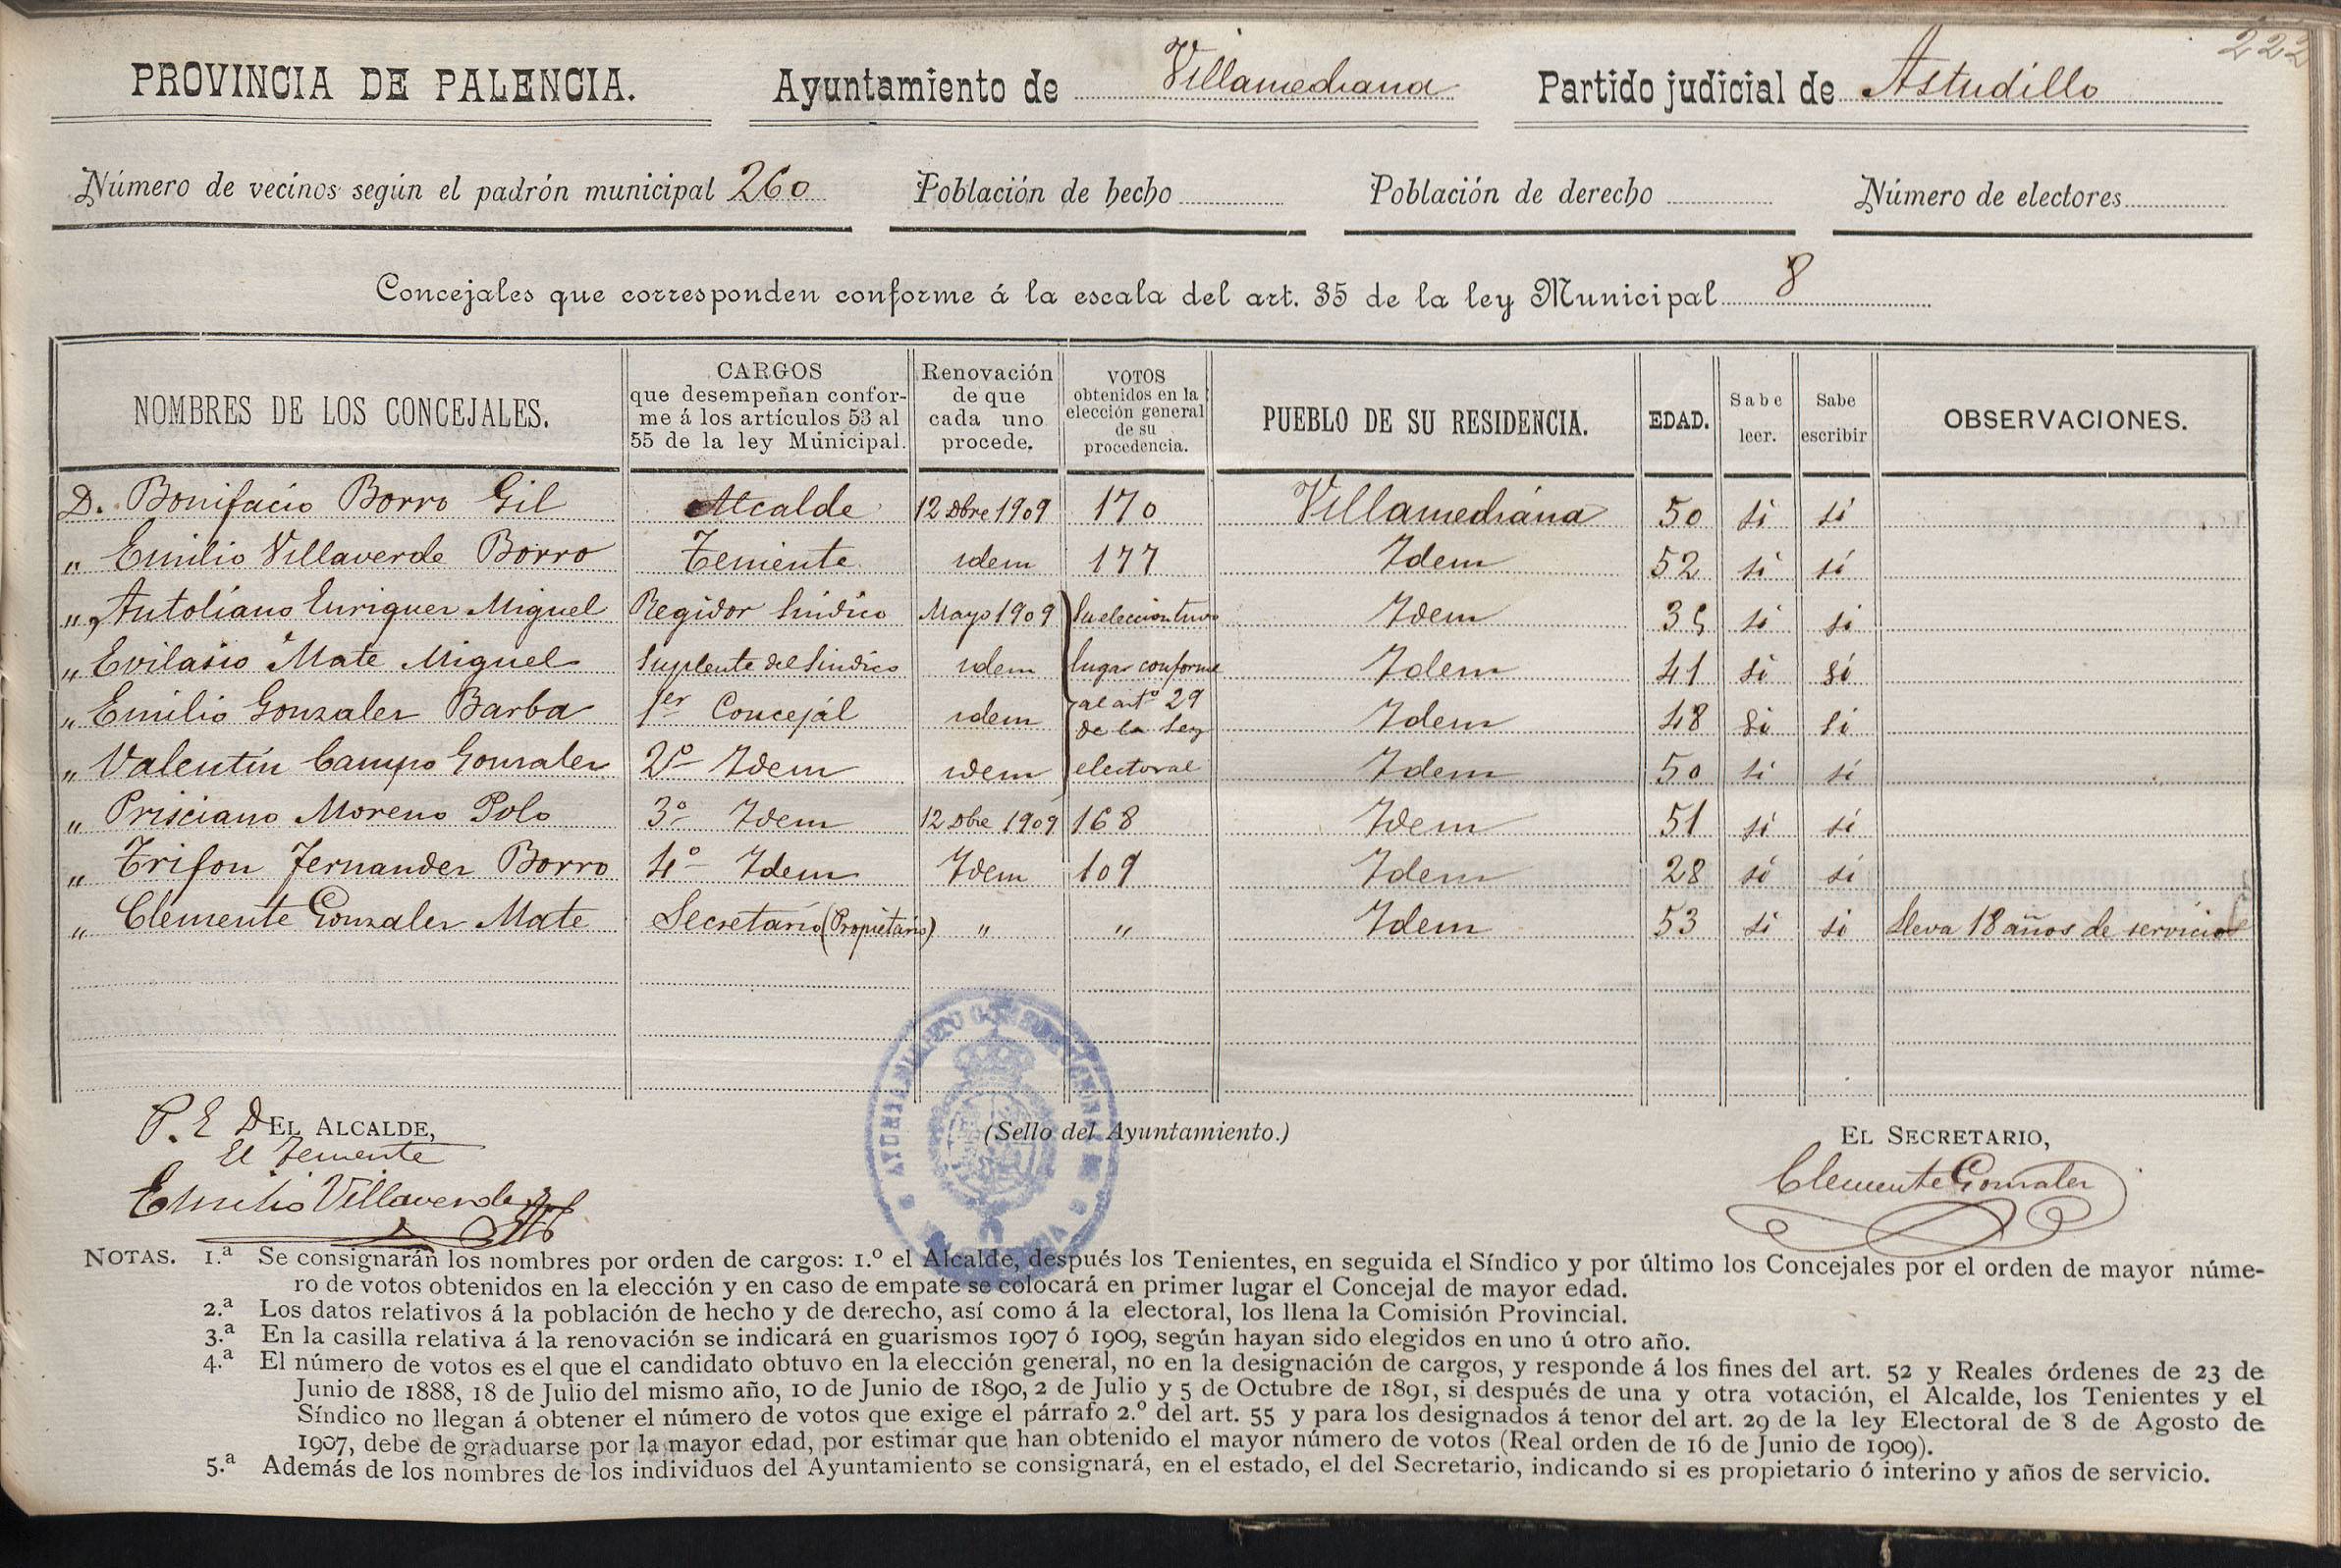 222
PROVINCIA DE PALENCIA. Ayuntamiento de Villamediana Partido judicial de Astudillo
Número de vecinos según el padrón municipal 260 Población de hecho Población de derecho Número de electores
Concejales que corresponden conforme á la escala del art. 35 de la ley Municipal 8
NOMBRES DE LOS CONCEJALES.
CARGOS
que desempeñan confor-
me á los artículos 53 al
55 de la ley Municipal.
Renovación
de que
cada uno
procede.
VOTOS
obtenidos en la
elección general
de su
procedencia.
PUEBLO DE SU RESIDENCIA.
EDAD.
Sabe
leer.
Sabe
escribir
OBSERVACIONES.
D. Bonifacio Borro Gil Alcalde 12 Dbre 1909 170 Villamediana 50 si si
" Emilio Villaverde Borro Teniente idem 177 Idem 52 si si
" Antoliano Enriquez Miguel Regidor Sindico Mayo 1909 Su eleccion tuvo Idem 35 si si
" Evilasio Mate Miguel Suplente del Sindico idem lugar conforme Idem 41 si si
" Emilio Gonzalez Barba 1er Concejal idem al artº 29 de la Ley Idem 48 si si
" Valentin Campo Gonzalez 2º Idem idem electoral Idem 50 si si
" Prisciano Moreno Polo 3º Idem 12 Dbre 1909 168 Idem 51 si si
" Trifon Fernandez Borro 4º Idem Idem 109 Idem 28 si si
" Clemente Gonzalez Mate Secretario (Propietario) " " Idem 53 si si lleva 18 años de servicios
P. E D EL ALCALDE,
El Teniente
Emilio Villaverde
(Sello del Ayuntamiento.)
AYUNTAMIENTO CONSTITUCIONAL DE
EL SECRETARIO,
Clemente Gonzalez
NOTAS. 1.ª Se consignarán los nombres por orden de cargos: 1.º el Alcalde, después los Tenientes, en seguida el Síndico y por último los Concejales por el orden de mayor núme-
ro de votos obtenidos en la elección y en caso de empate se colocará en primer lugar el Concejal de mayor edad.
2.ª Los datos relativos á la población de hecho y de derecho, así como á la electoral, los llena la Comisión Provincial.
3.ª En la casilla relativa á la renovación se indicará en guarismos 1907 ó 1909, según hayan sido elegidos en uno ú otro año.
4.ª El número de votos es el que el candidato obtuvo en la elección general, no en la designación de cargos, y responde á los fines del art. 52 y Reales órdenes de 23 de
Junio de 1888, 18 de Julio del mismo año, 10 de Junio de 1890, 2 de Julio y 5 de Octubre de 1891, si después de una y otra votación, el Alcalde, los Tenientes y el
Síndico no llegan á obtener el número de votos que exige el párrafo 2.º del art. 55 y para los designados á tenor del art. 29 de la ley Electoral de 8 de Agosto de
1907, debe de graduarse por la mayor edad, por estimar que han obtenido el mayor número de votos (Real orden de 16 de Junio de 1909).
5.ª Además de los nombres de los individuos del Ayuntamiento se consignará, en el estado, el del Secretario, indicando si es propietario ó interino y años de servicio.